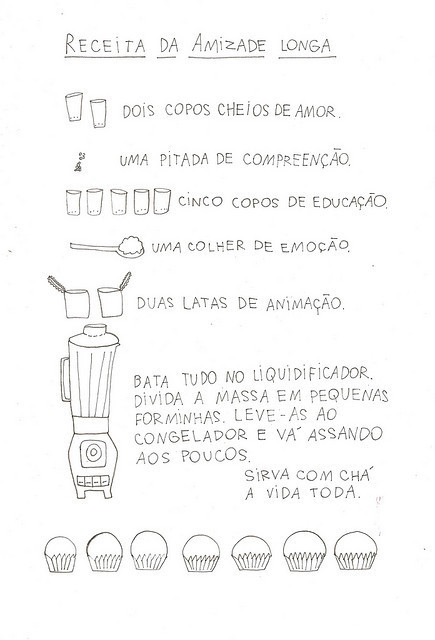 RECEITA DA AMIZADE LONGA
DOIS COPOS CHEIOS DE AMOR.
UMA PITADA DE COMPREENÇÃO.
CINCO COPOS DE EDUCAÇÃO.
UMA COLHER DE EMOÇÃO.
DUAS LATAS DE ANIMAÇÃO.
BATA TUDO NO LIQUIDIFICADOR.
DIVIDA A MASSA EM PEQUENAS
FORMINHAS. LEVE-AS AO
CONGELADOR E VÁ ASSANDO
AOS POUCOS.
SIRVA COM CHÁ
A VIDA TODA.